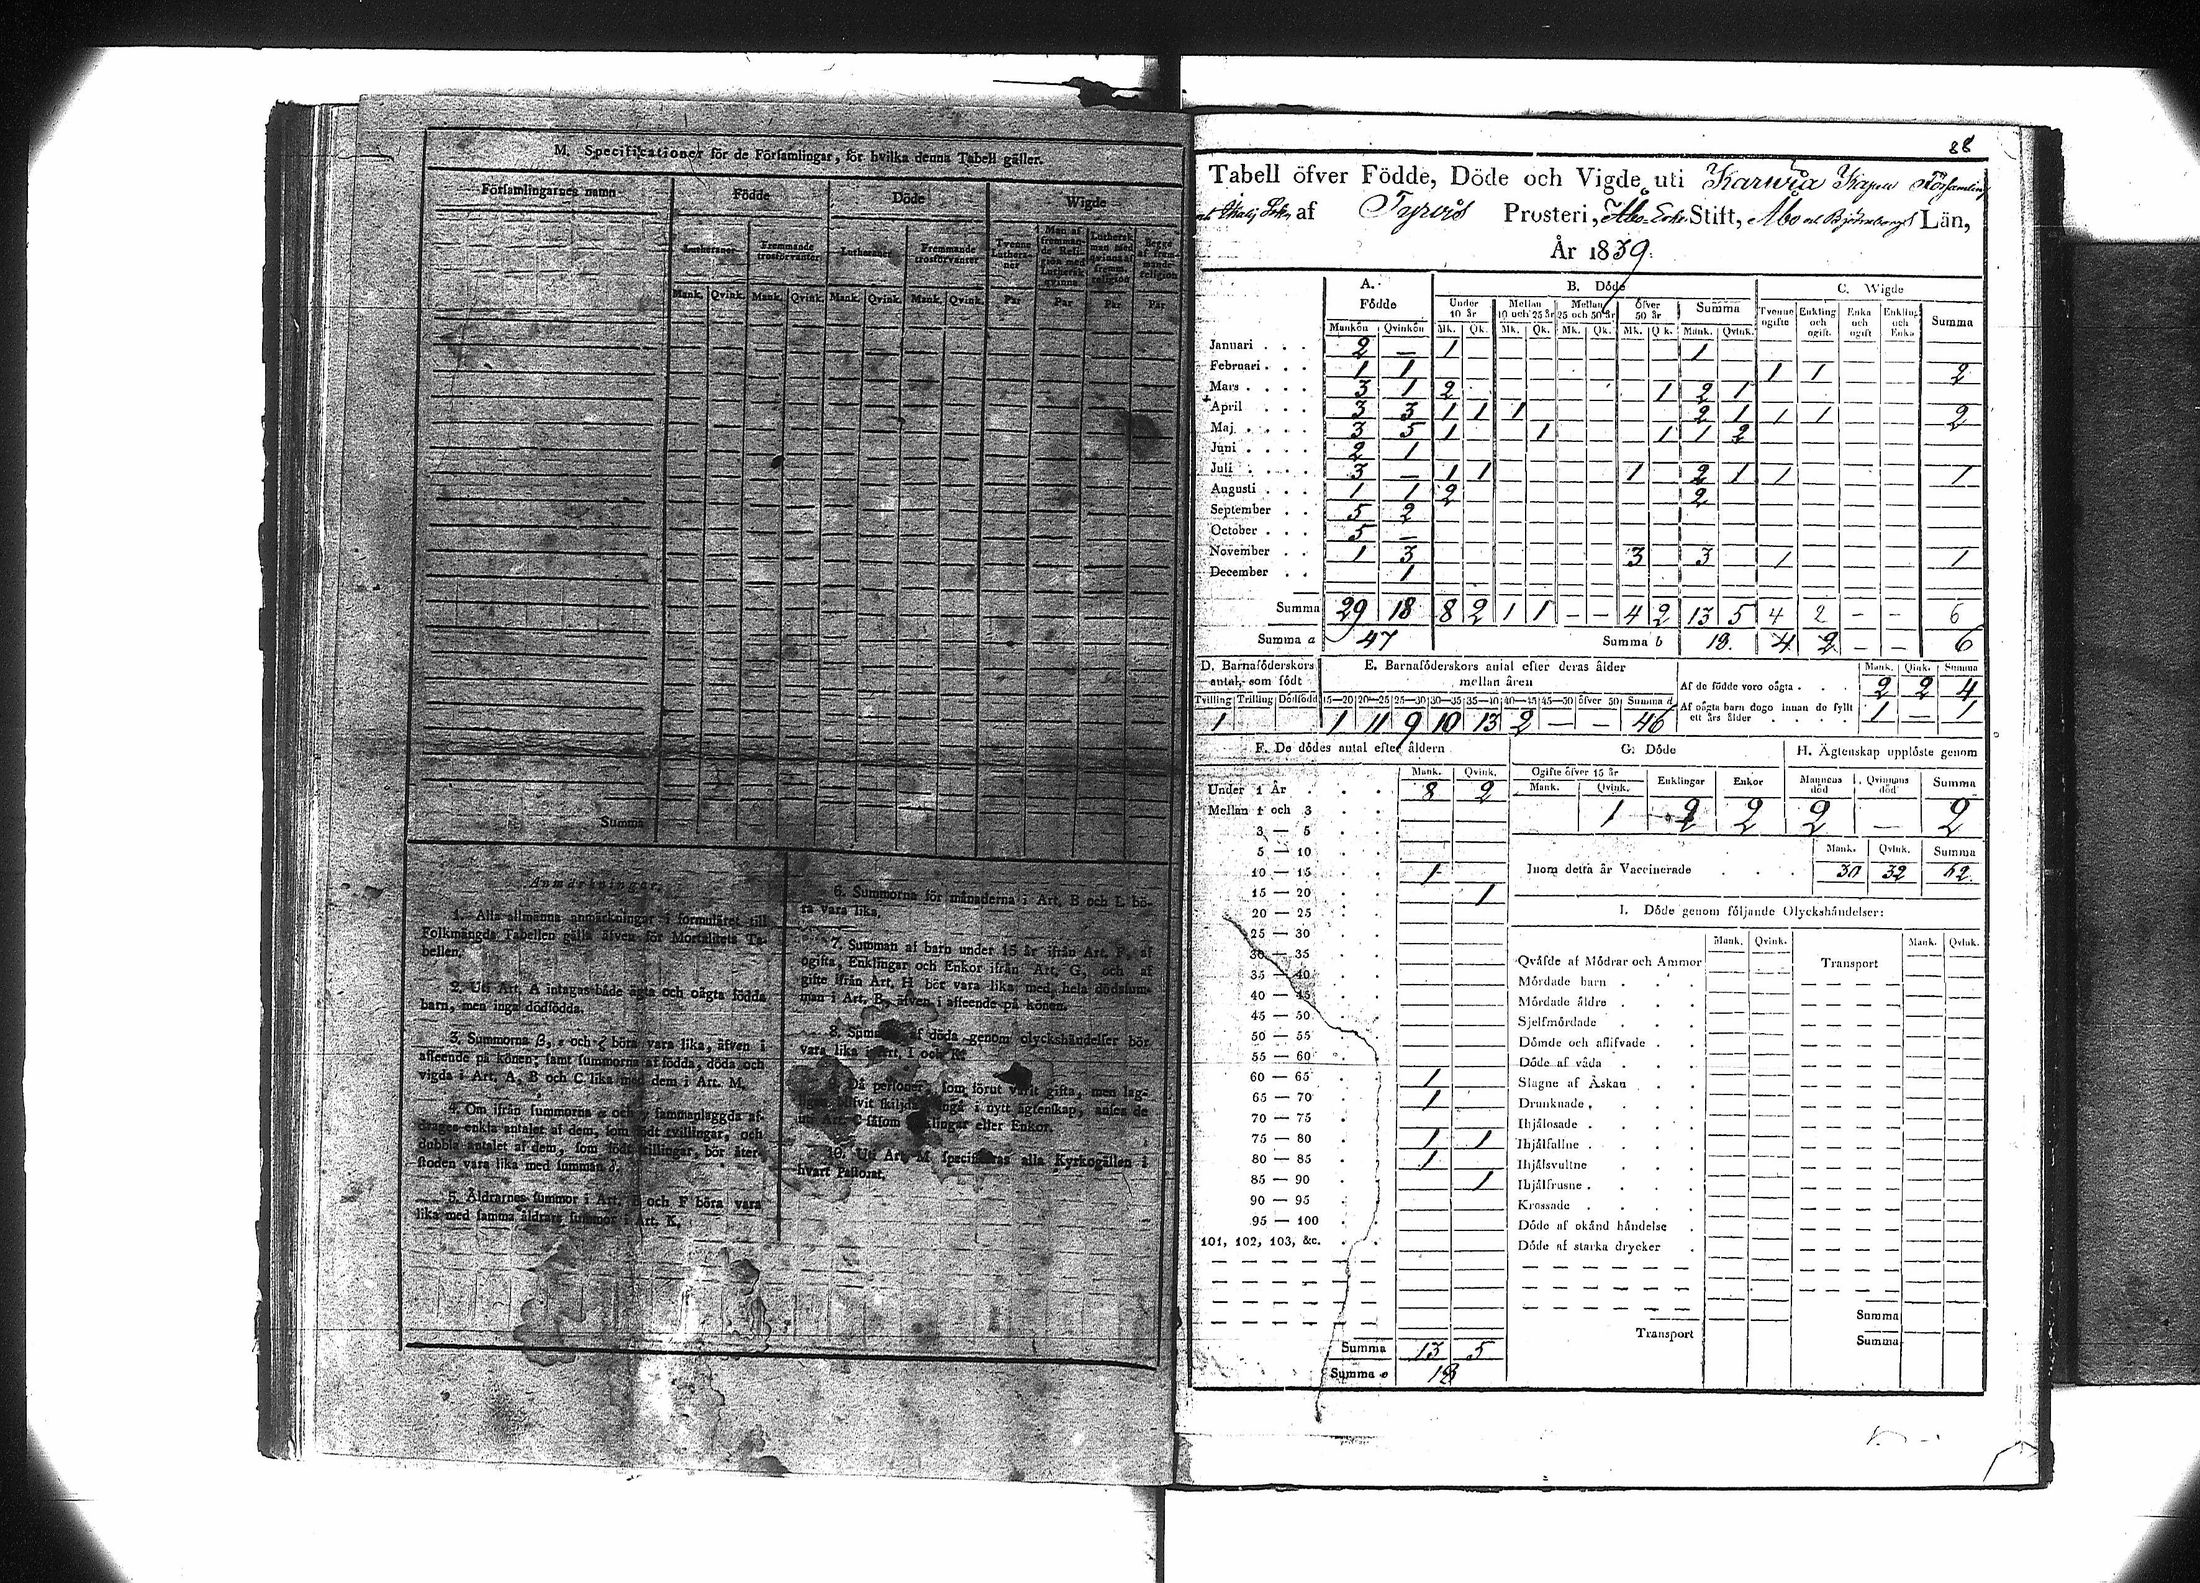 M. Specificationer för de Församlingar, för hvilka denna Tabell gäller.
Församlingarnes namn Födde Döde Wigde
Lutheraner Fremmande trosförvanter Lutheraner Fremmande trosförvanter Tvenne Lutheraner Man af fremmande Religion med Luthersk qvinna Luthersk man med qvinna af fremm. religion Begge af fremmande religion
Mank. Qvink. Mank. Qvink. Mank. Qvink. Mank. Qvink. Par Par Par Par
Summa
Anmärkningar.
1. Alla allmänna anmärkningar i formuläret till
Folkmängds Tabellen gälla äfven för Mortalitets Ta-
bellen.
2. Uti Art. A intagas både ägta och oägta födda
barn, men inga dödfödda.
3. Summorna β, ε och ζ böra vara lika, äfven i
afseende på könen; samt summorna af födda, döda och
vigda i Art. A, B och C lika med dem i Art. M.
4. Om ifrån summorna α och γ sammanlaggda af-
drages enkla antalet af dem, som födt tvillingar, och
dubbla antalet af dem, som födt trillingar, bör åter-
stoden vara lika med summan δ.
5. Åldrarnes summor i Art. B och F böra vara
lika med samma åldrars summor i Art. K.
6. Summorna för månaderna i Art. B och L bö-
ra vara lika.
7. Summan af barn under 15 år ifrån Art. F, af
ogifta, Enklingar och Enkor ifrån Art. G, och af
gifte ifrån Art. H bör vara lika med hela dödssum-
man i Art. B, äfven i afseende på könen.
8. Summan af döda genom olyckshändelser bör
vara lika i Art. I och K.
9. Då personer, som förut varit gifta, men lag-
ligen blifvit skiljda, ingå i nytt ägtenskap, anses de
uti Art. C såsom Enklingar eller Enkor.
10. Uti Art. M specificeras alla Kyrkogällen i
hvart Pastorat.
88
Tabell öfver Födde, Döde och Vigde uti Karvia Kapell Församling
af Tyrvis Prosteri, Åbo Erke Stift, Åbo och Björneborgs Län,
År 1839.
A. Födde B. Döde C. Wigde
Under 10 år Mellan 10 och 25 år Mellan 25 och 50 år Öfver 50 år Summa Tvenne ogifte Enkling och ogift. Enka och ogift Enkling och Enka Summa
Mankön Qvinkön Mk. Qk. Mk. Qk. Mk. Qk. Mk. Qk. Mank. Qvink.
Januari . . . 2 — 1 1
Februari . . . 1 1 1 1 2
Mars . . . . 3 1 2 1 2 1
April . . . 3 3 1 1 1 2 1 1 1 2
Maj . . . . 3 5 1 1 1 1 2
Juni . . . . 2 1
Juli . . . . 3 — 1 1 1 2 1 1 1
Augusti . . . 1 1 2 2
September . . 5 2
October . . . 5 —
November . . 1 3 3 3 1 1
December . . 1
Summa 29 18 8 2 1 1 — — 4 2 13 5 4 2 — — 6
Summa a 47 Summa b 18. 4 2 — — 6
D. Barnaföderskors antal, som födt E. Barnaföderskors antal efter deras ålder mellan åren Mank. Qink. Summa
Af de födde voro oägta . . . 2 2 4
Tvilling Trilling Dödfödd 15—20 20—25 25—30 30—35 35—40 40—45 45—50 öfver 50 Summa d
Af oägta barn dogo innan de fyllt ett års ålder . . . . 1 — 1
1 1 11 9 10 13 2 — — 46
F. De dödes antal efter åldern
Mank. Qvink.
Under 1 År . . . 8 2
Mellan 1 och 3
3 — 5
5 — 10
10 — 15 1
15 — 20 1
20 — 25
25 — 30
30 — 35
35 — 40
40 — 45
45 — 50
50 — 55
55 — 60
60 — 65 1
65 — 70 1
70 — 75
75 — 80 1 1
80 — 85 1
85 — 90 1
90 — 95
95 — 100
101, 102, 103, &c.
Summa 13 5
Summa e 18
G. Döde H. Ägtenskap upplöste genom
Ogifte öfver 15 år Enklingar Enkor Mannens död Qvinnans död Summa
Mank. Qvink.
1 2 2 2 — 2
Mank. Qvink. Summa
Inom detta år Vaccinerade . . . 30 32 62.
I. Döde genom följande Olyckshändelser:
Mank. Qvink. Mank. Qvink.
Qväfde af Mödrar och Ammor Transport
Mördade barn
Mördade äldre
Sjelfmördade
Dömde och aflifvade
Döde af våda
Slagne af Åskan
Drunknade
Ihjälosade
Ihjälfallne
Ihjälsvultne
Ihjälfrusne
Krossade
Döde af okänd händelse
Döde af starka drycker
Summa
Transport Summa